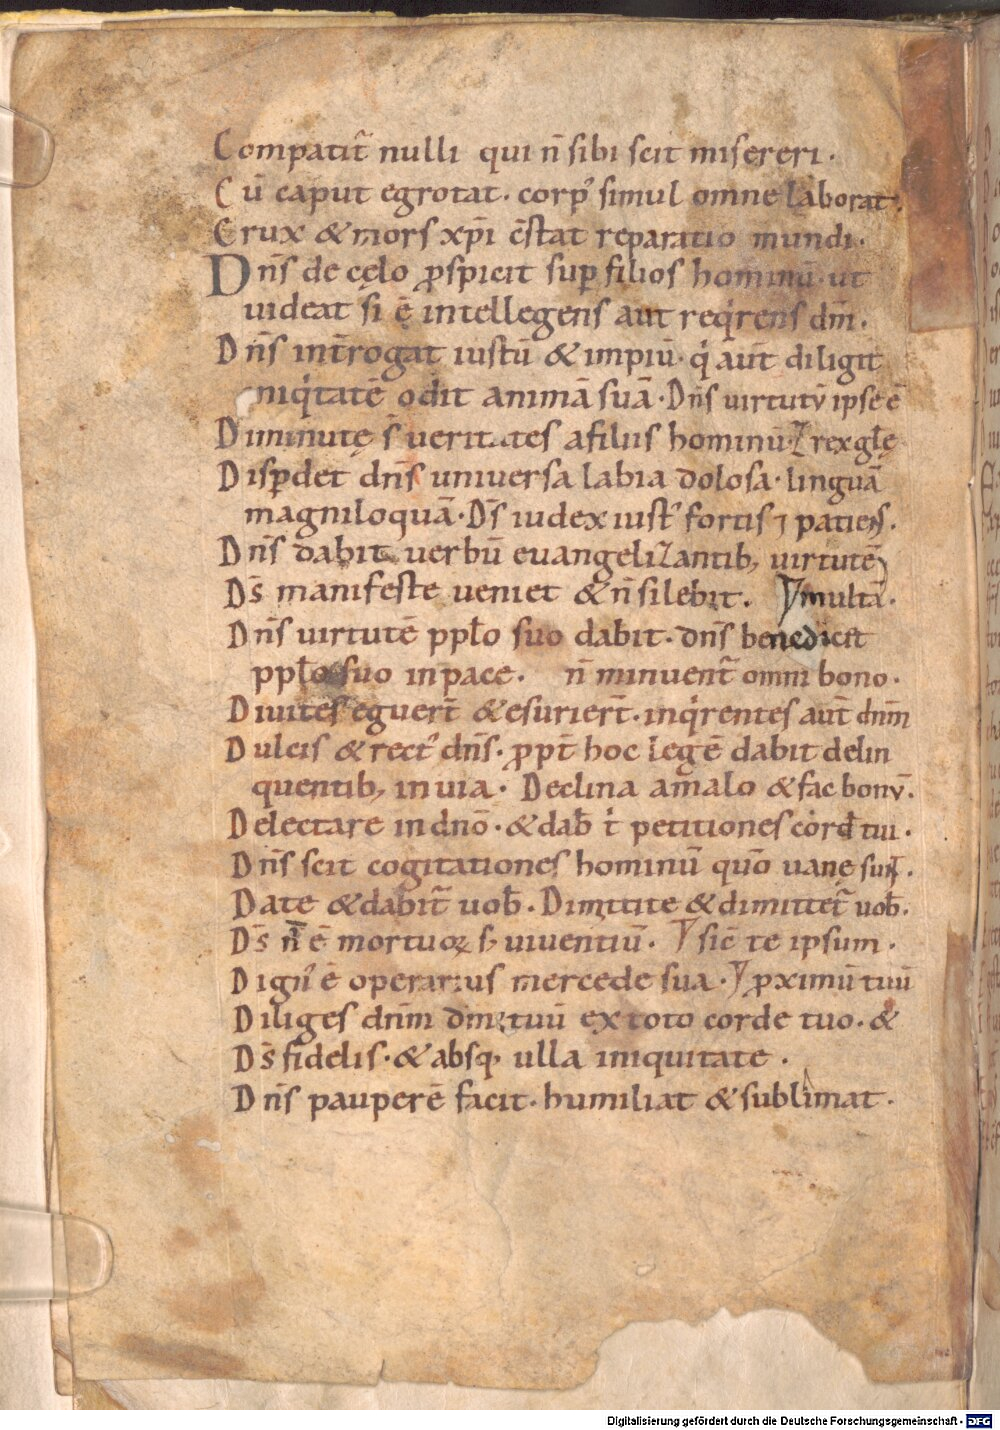 Compatit̃ nulli qui n̄ sibi scit misereri.
Cū caput egrotat. corpꝰ simul omne laborat.
Crux & mors xp̄i ēstat reparatio mundi.
Dn̄s de cęlo ꝓspicit suꝑ filios hominū. ut
uideat si ē intellegens aut reqͥrens dm̄.
Dn̄s int̄rogat iustū & impiū. qͥ aut̄ diligit
niqͥtatē odit animā suā. Dn̄s uirtutū ipse ē
Diminutę s̄ ueritates a filiis hominū. rex glę̄
Disꝑdet dn̄s uniuersa labia dolosa. linguā
magniloquā. Ds̄ iudex iustꝰ fortis ⁊ patiens.
Dn̄s dabit uerbū euangelizantib; uirtutē
Ds̄ manifeste ueniet & n̄ silebit. multā.
Dn̄s uirtutē pplo suo dabit. dn̄s benedicet
pplo suo in pace. n̄ minuent̃ omni bono.
Diuites eguer̄t & esurier̄t. inqͥrentes aut̄ dnm̄
Dulcis & rectꝰ dn̄s. ꝓpt̄ hoc legē dabit delin
quentib; in uia. Declina a malo & fac bonū.
Delectare in dn̄o. & dab̄ tͥ petitiones cord̄ tui.
Dn̄s scit cogitationes hominū quō uanę sunt.
Date & dabit̃ uob̄. Dimittite & dimittet̃ uob̄.
Ds̄ n̄ ē mortuoꝝ s; uiuentiū. sic̄ te ipsum.
Dignꝰ ē operarius mercede sua. ꝓximū tuū
Diliges dnm̄ dm̄ tuū ex toto corde tuo. &
Ds̄ fidelis. & absq; ulla iniquitate.
Dn̄s pauperē facit. humiliat & sublimat.
Digitalisierung gefördert durch die Deutsche Forschungsgemeinschaft - DFG